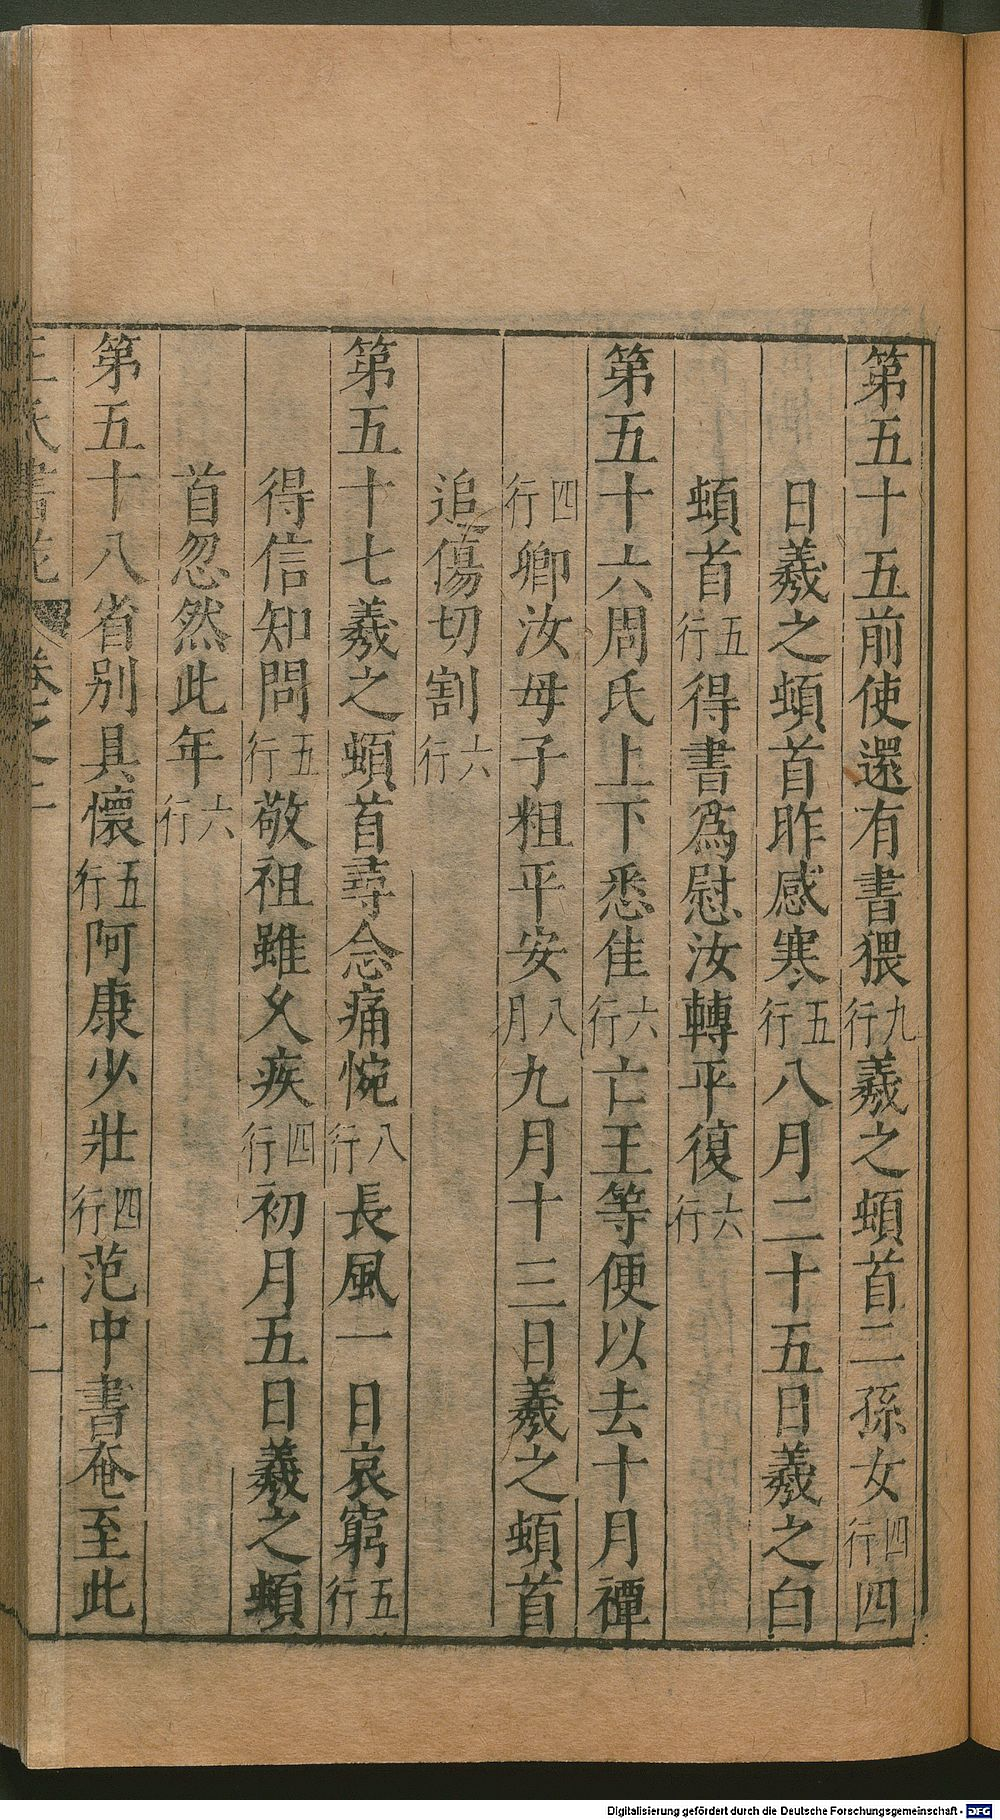 第五十五前使還有書猥九行羲之頓首二孫女四行四
日羲之頓首昨感寒五行八月二十五日羲之白
頓首五行得書爲慰汝轉平復六行
第五十六周氏上下悉佳六行亡王等便以去十月禫
四行卿汝母子粗平安八月九月十三日羲之頓首
追傷切割六行
第五十七羲之頓首尋念痛惋八行長風一日哀窮五行
得信知問五行敬祖雖久疾四行初月五日羲之頓
首忽然此年六行
第五十八省別具懷五行阿康少壯四行范中書奄至此
王氏書苑 卷之二 十一
Digitalisierung gefördert durch die Deutsche Forschungsgemeinschaft - DFG